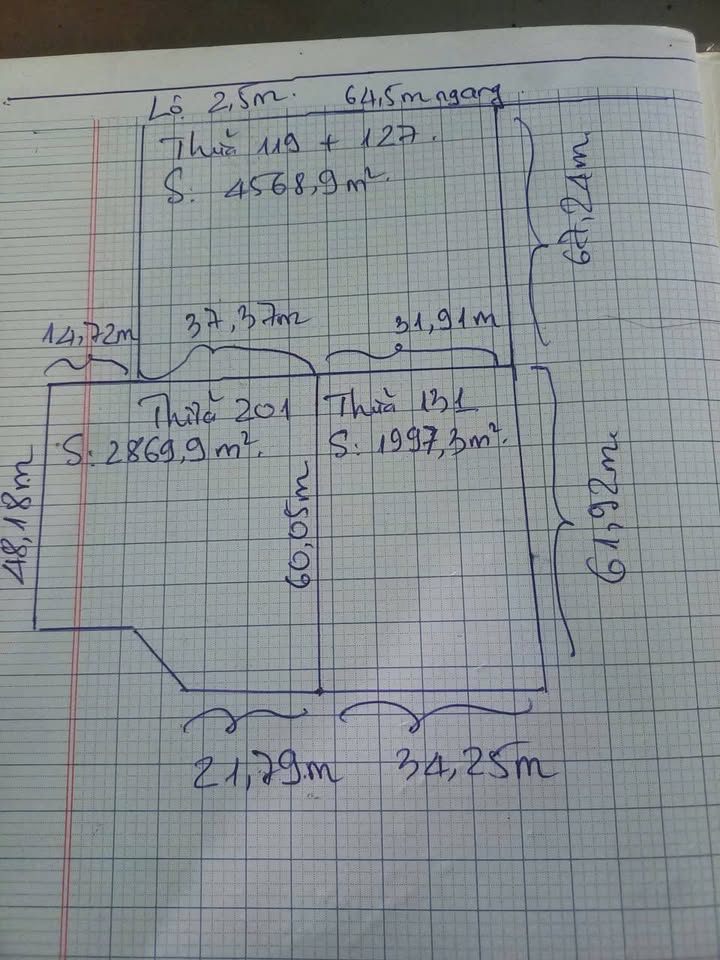 Lộ 2,5m. 64,5m ngang
Thửa 119 + 127.
S: 4568,9m².
67,24m
14,72m
37,37m
31,91m
Thửa 201
S: 2869,9m².
Thửa 131
S: 1997,3m².
48,18m
60,05m
61,92m
21,79m
34,25m